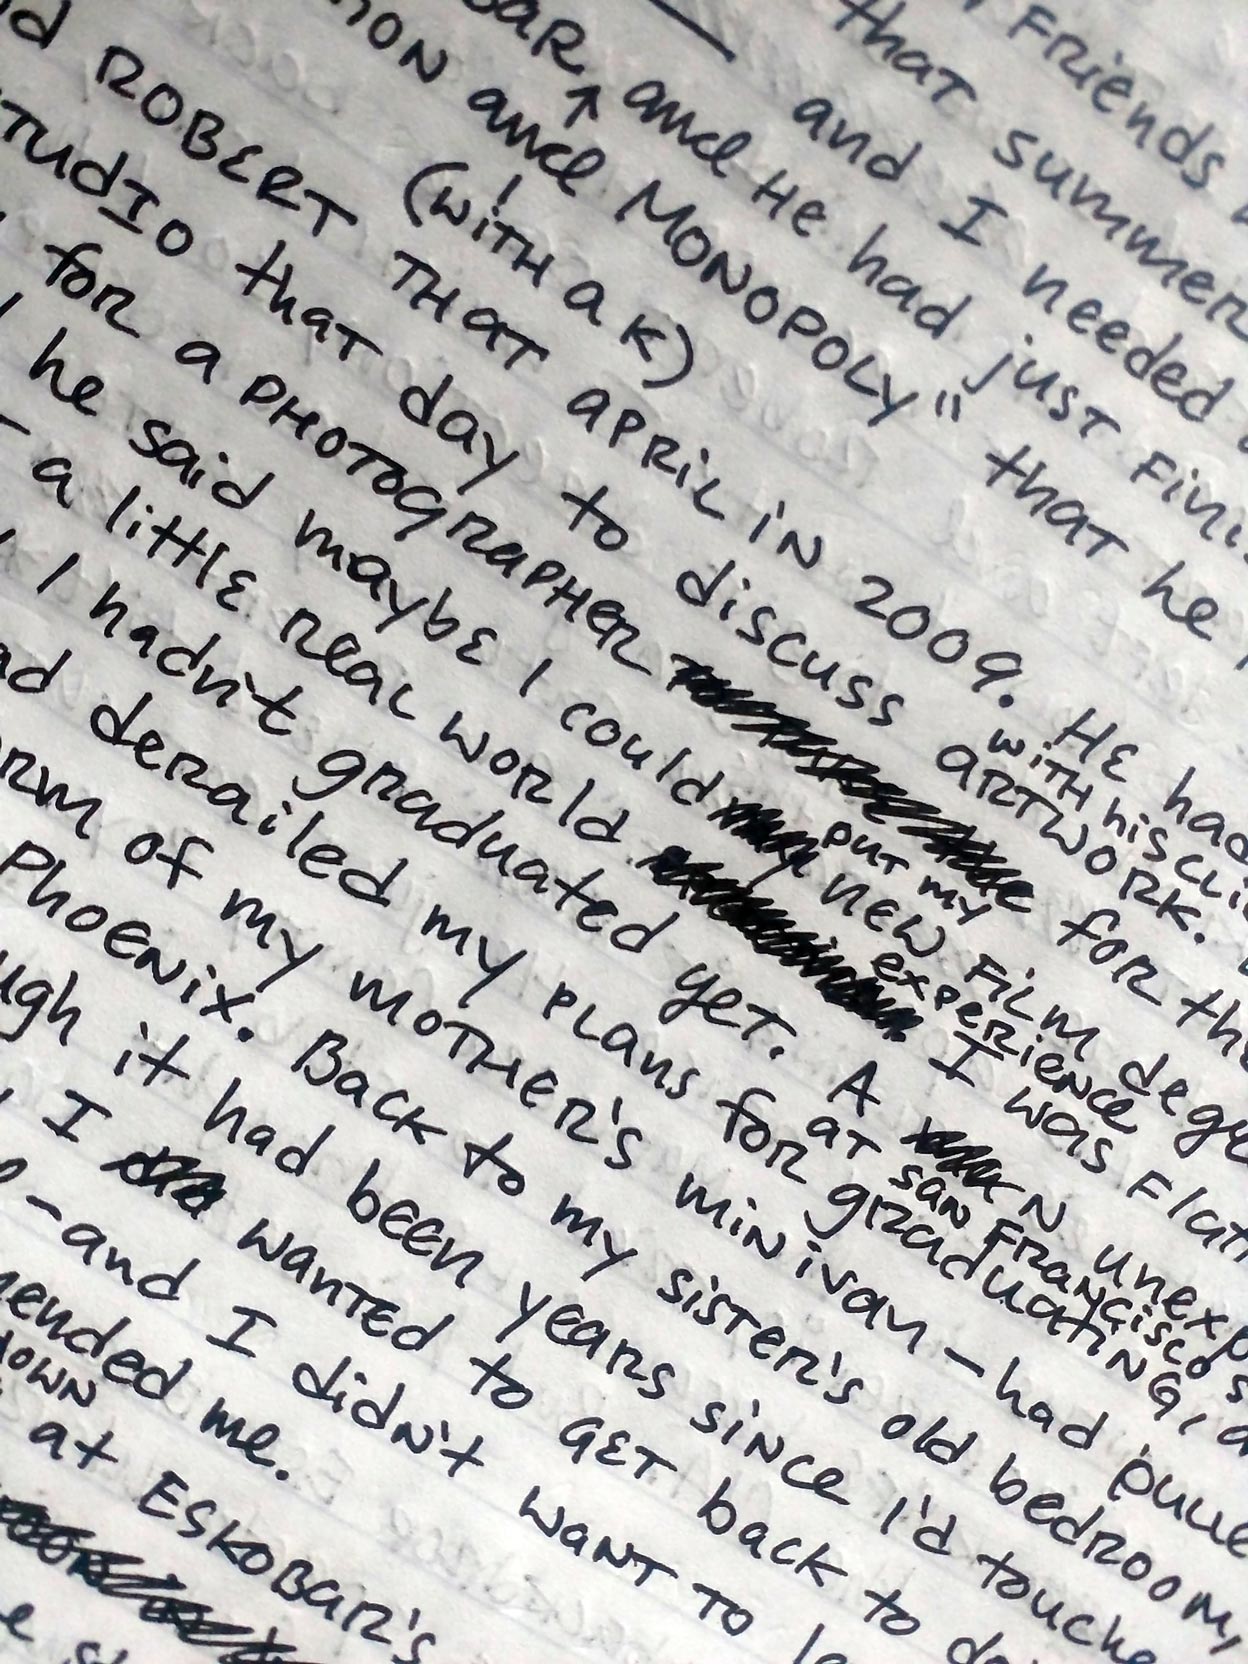 Friends
that summer
and I needed
BAR, and He had just Fini
and MONOPOLY" that he
(with a K)
ROBERT THAT APRIL IN 2009. HE had
with his cli
STUDIO that day to discuss ARTWORK.
for a PHOTOGRAPHER for the
he said maybe I could new Film degr
put my
a little real world I was Flatt
experience
I hadn't graduated yet. A N unexp
at San Francisco S
derailed my plans for graduating,
of my MOTHER'S minivan - had pulle
PHOENIX. Back to my sister's old bedroom,
it had been years since I'd touche
I wanted to GET back to
-and I didn't want to
me.
at ESKOBAR'S